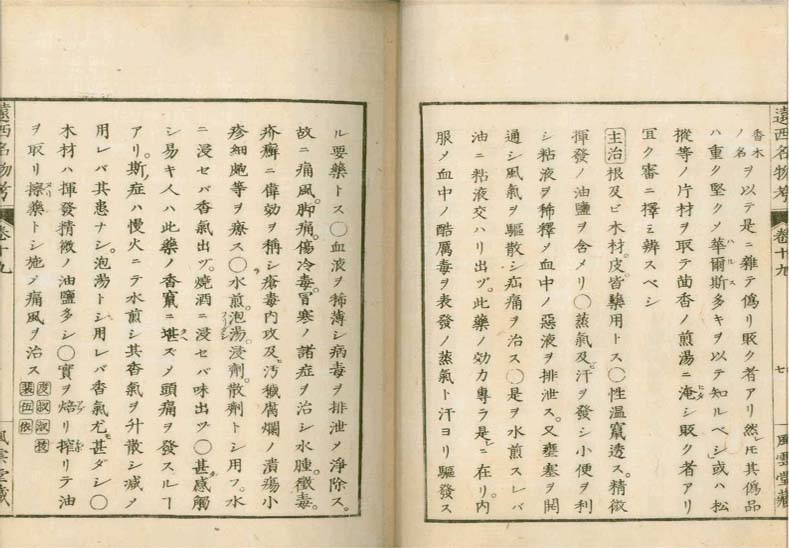 遠西名物考 卷十九 七 風雲堂藏
香木ノ名ヲ以テ是ニ雜テ僞リ販ク者アリ然𪜈其僞品
ハ重ク堅クノ華爾斯ハルス多キヲ以テ知ルベシ或ハ松
樅等ノ片材ヲ取テ茴香ノ煎湯ニ淹ヒタシ販ク者アリ
宜ク審ニ擇ミ辨スベシ
主治 根及ビ木材。皮皆藥用トス〇性溫竄透ス。精微
揮發ノ油鹽ヲ含メリ〇蒸氣及ヒ汗ヲ發シ小便ヲ利
シ粘液ヲ稀釋メ血中ノ惡液ヲ排泄ス。又壅塞ヲ開
通シ風氣ヲ驅散シ疝痛ヲ治ス〇是ヲ水煎スレバ
油ニ粘液交ハリ出ヅ。此藥ノ効力專ラ是レニ在リ。内
服メ血中ノ酷厲毒ヲ表發ノ蒸氣ト汗ヨリ驅發ス
ル要藥トス〇血液ヲ稀薄シ病毒ヲ排泄メ淨除ス。
故ニ痛風。脚痛。傷冷毒。冒寒ノ諸症ヲ治シ水腫。黴毒。
疥癬ニ偉効ヲ稱シ瘡毒内攻及ヒ汚穢腐爛ノ潰瘍小
疹細皰等ヲ療ス〇水煎。泡湯フリダシ。浸劑。散劑トシ用フ。水
ニ浸セバ香氣出ヅ。燒酒ニ浸セバ味出ヅ〇甚感觸
シ易キ人ハ此藥ノ香竄ニ堪タヘズメ頭痛ヲ發スルヿ
アリ。斯ノ症ハ慢火ニテ水煎シ其香氣ヲ升散シ減メ
用レバ其患ナシ。泡湯トシ用レバ香氣尤モ甚ダシ〇
木材ハ揮發精微ノ油鹽多シ〇實ヲ焙リ搾リテ油
ヲ取リ擦ヌリ藥トシ施シ痛風ヲ治ス
遠西名物考 卷十九 風雲堂藏